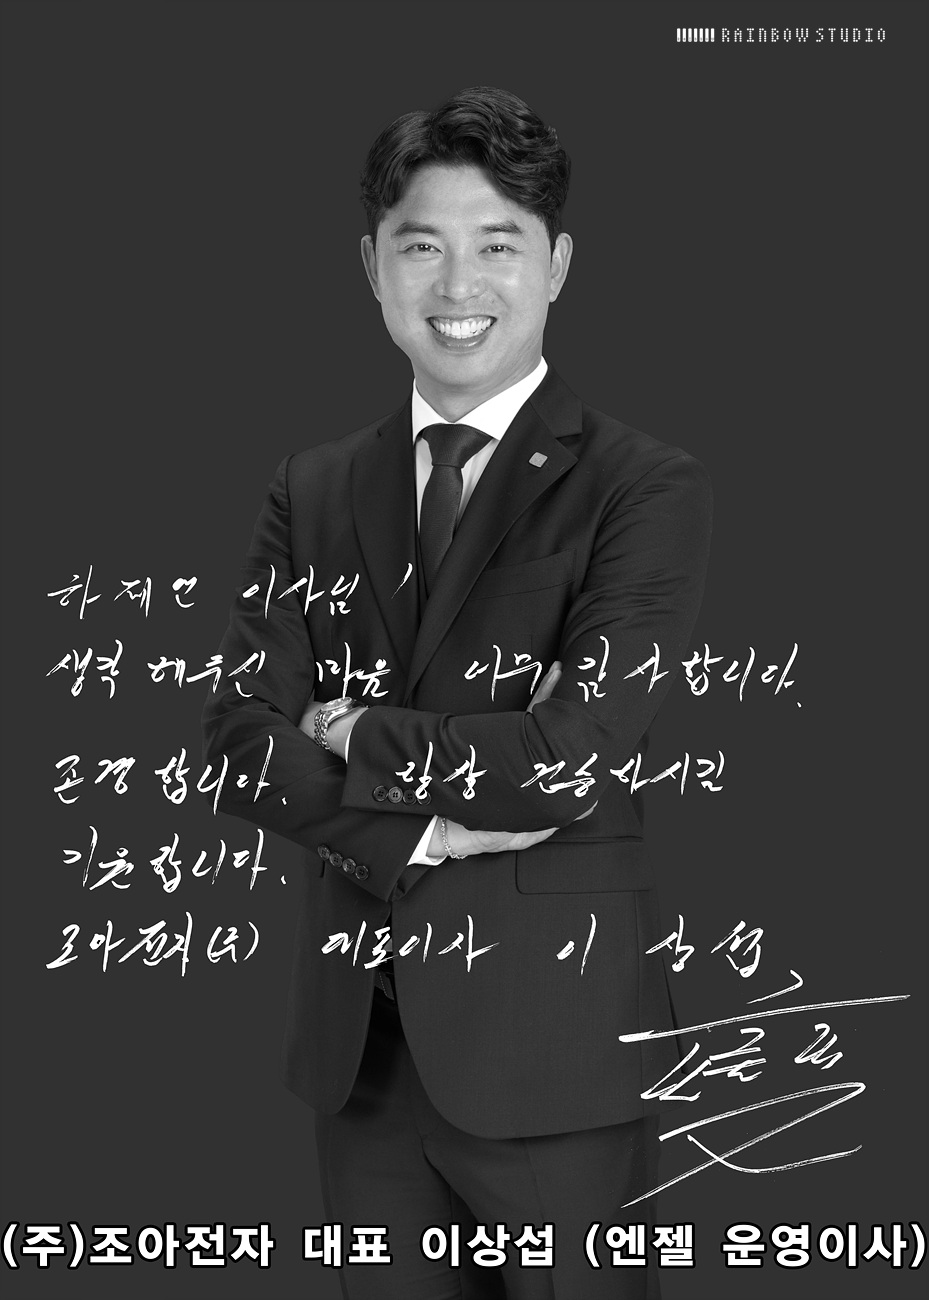 RAINBOW STUDIO
하재언 이사님!
생각해주신 마음 너무 감사합니다.
존경합니다. 항상 건승하시길
기원합니다.
조아전자(주) 대표이사 이상섭
(주)조아전자 대표 이상섭 (엔젤 운영이사)